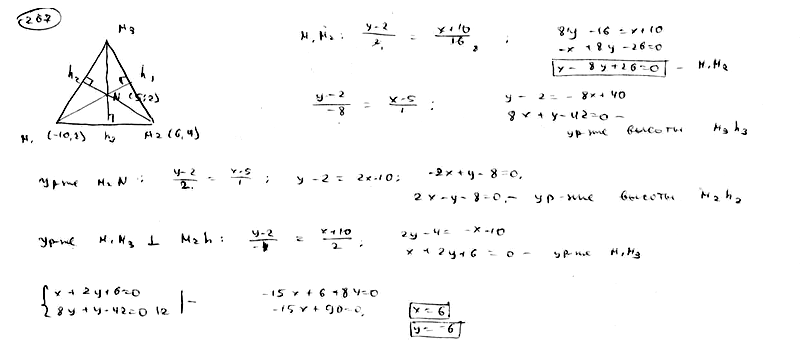 267
M3
h2 h1
N (5;2)
M1 (-10,2) h3 M2 (6,4)
M1M2: (y-2)/2 = (x+10)/16 ; 8y -16 = x+10
-x + 8y -26=0
x - 8y+26=0 - M1M2
(y-2)/-8 = (x-5)/1 ; y - 2 = - 8x+40
8x + y -42=0 -
ур-ние высоты M3h3
Ур-ние M2N: (y-2)/2 = (x-5)/1 ; y-2 = 2x-10; -2x+y-8=0,
2x-y-8=0, - ур-ние высоты M2h2
Ур-ние M1M3 ⊥ M2h: (y-2)/-1 = (x+10)/2 ; 2y-4= -x-10
x + 2y+6 = 0 - ур-ние M1M3
{ x + 2y+6=0 -15x+6+84=0
8y+y-42=0 |2 | - -15x+90=0, x=6
y=-6